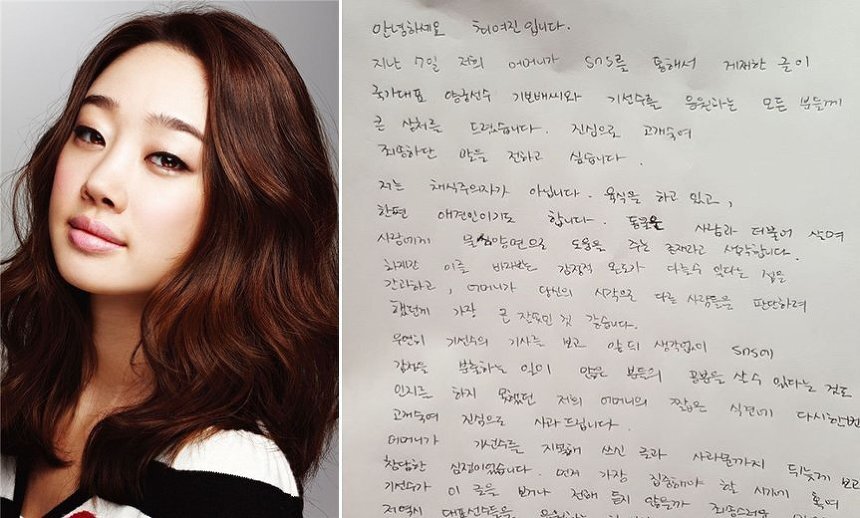 안녕하세요 최여진입니다.
지난 7일 저희 어머니가 SNS를 통해서 게재한 글이
국가대표 양궁선수 기보배씨와 기선수를 응원하는 모든 분들께
큰 상처를 드렸습니다. 진심으로 고개숙여
죄송하단 말을 전하고 싶습니다.
저는 채식주의자가 아닙니다. 육식을 하고 있고,
한편 애견인이기도 합니다. 동물은 사람과 더불어 살며
사람에게 물심양면으로 도움을 주는 존재라고 생각합니다.
하지만 이를 바라보는 감정적 온도가 다를수 있다는 점을
간과하고, 어머니가 당신의 시각으로 다른 사람들을 판단하려
했던게 가장 큰 잘못인 것 같습니다.
우연히 기선수의 기사를 보고 앞뒤 생각없이 SNS에
감정을 분출하는 일이 많은 분들의 공분을 살수 있다는 점도
인지를 하지 못했던 저희 어머니의 짧은 식견에 다시한번
고개숙여 진심으로 사과드립니다.
어머니가 기선수를 지명해 쓰신 글과 사과문까지 뒤늦게 보고
참담한 심정이었습니다. 먼저 가장 집중해야 할 시기에 혹여
기선수가 이 글을 보거나 전해 듣지 않을까 죄송스러운
저역시 대표선수들을 응원하는